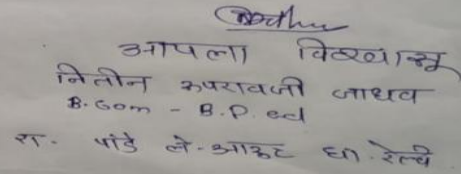 आपला विश्वासू
नितीन रुपरावजी जाधव
B.Com - B.P.ed
रा. पांडे ले-आऊट